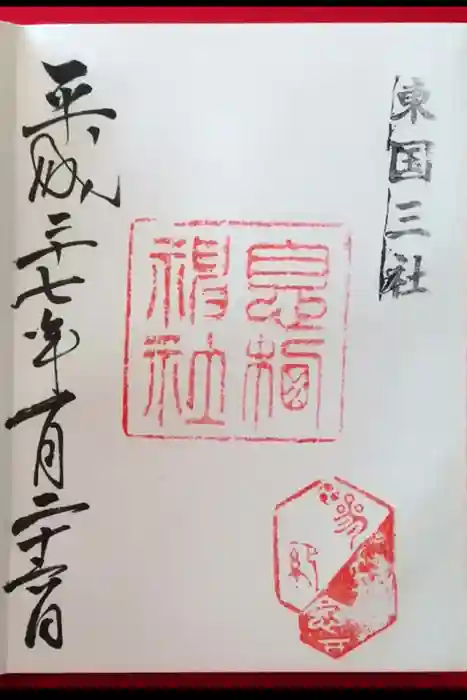 東国三社
息栖
神社
平成二十七年一月二十六日